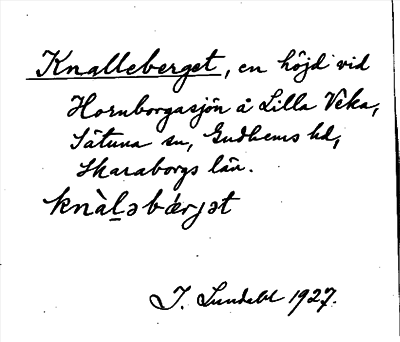 Knalleberget, en höjd vid
Hornborgasjön å Lilla Veka,
Sätuna sn, Gudhems hd,
Skaraborgs län.
knàl̠ə bǽrjət
J. Lundahl 1927.